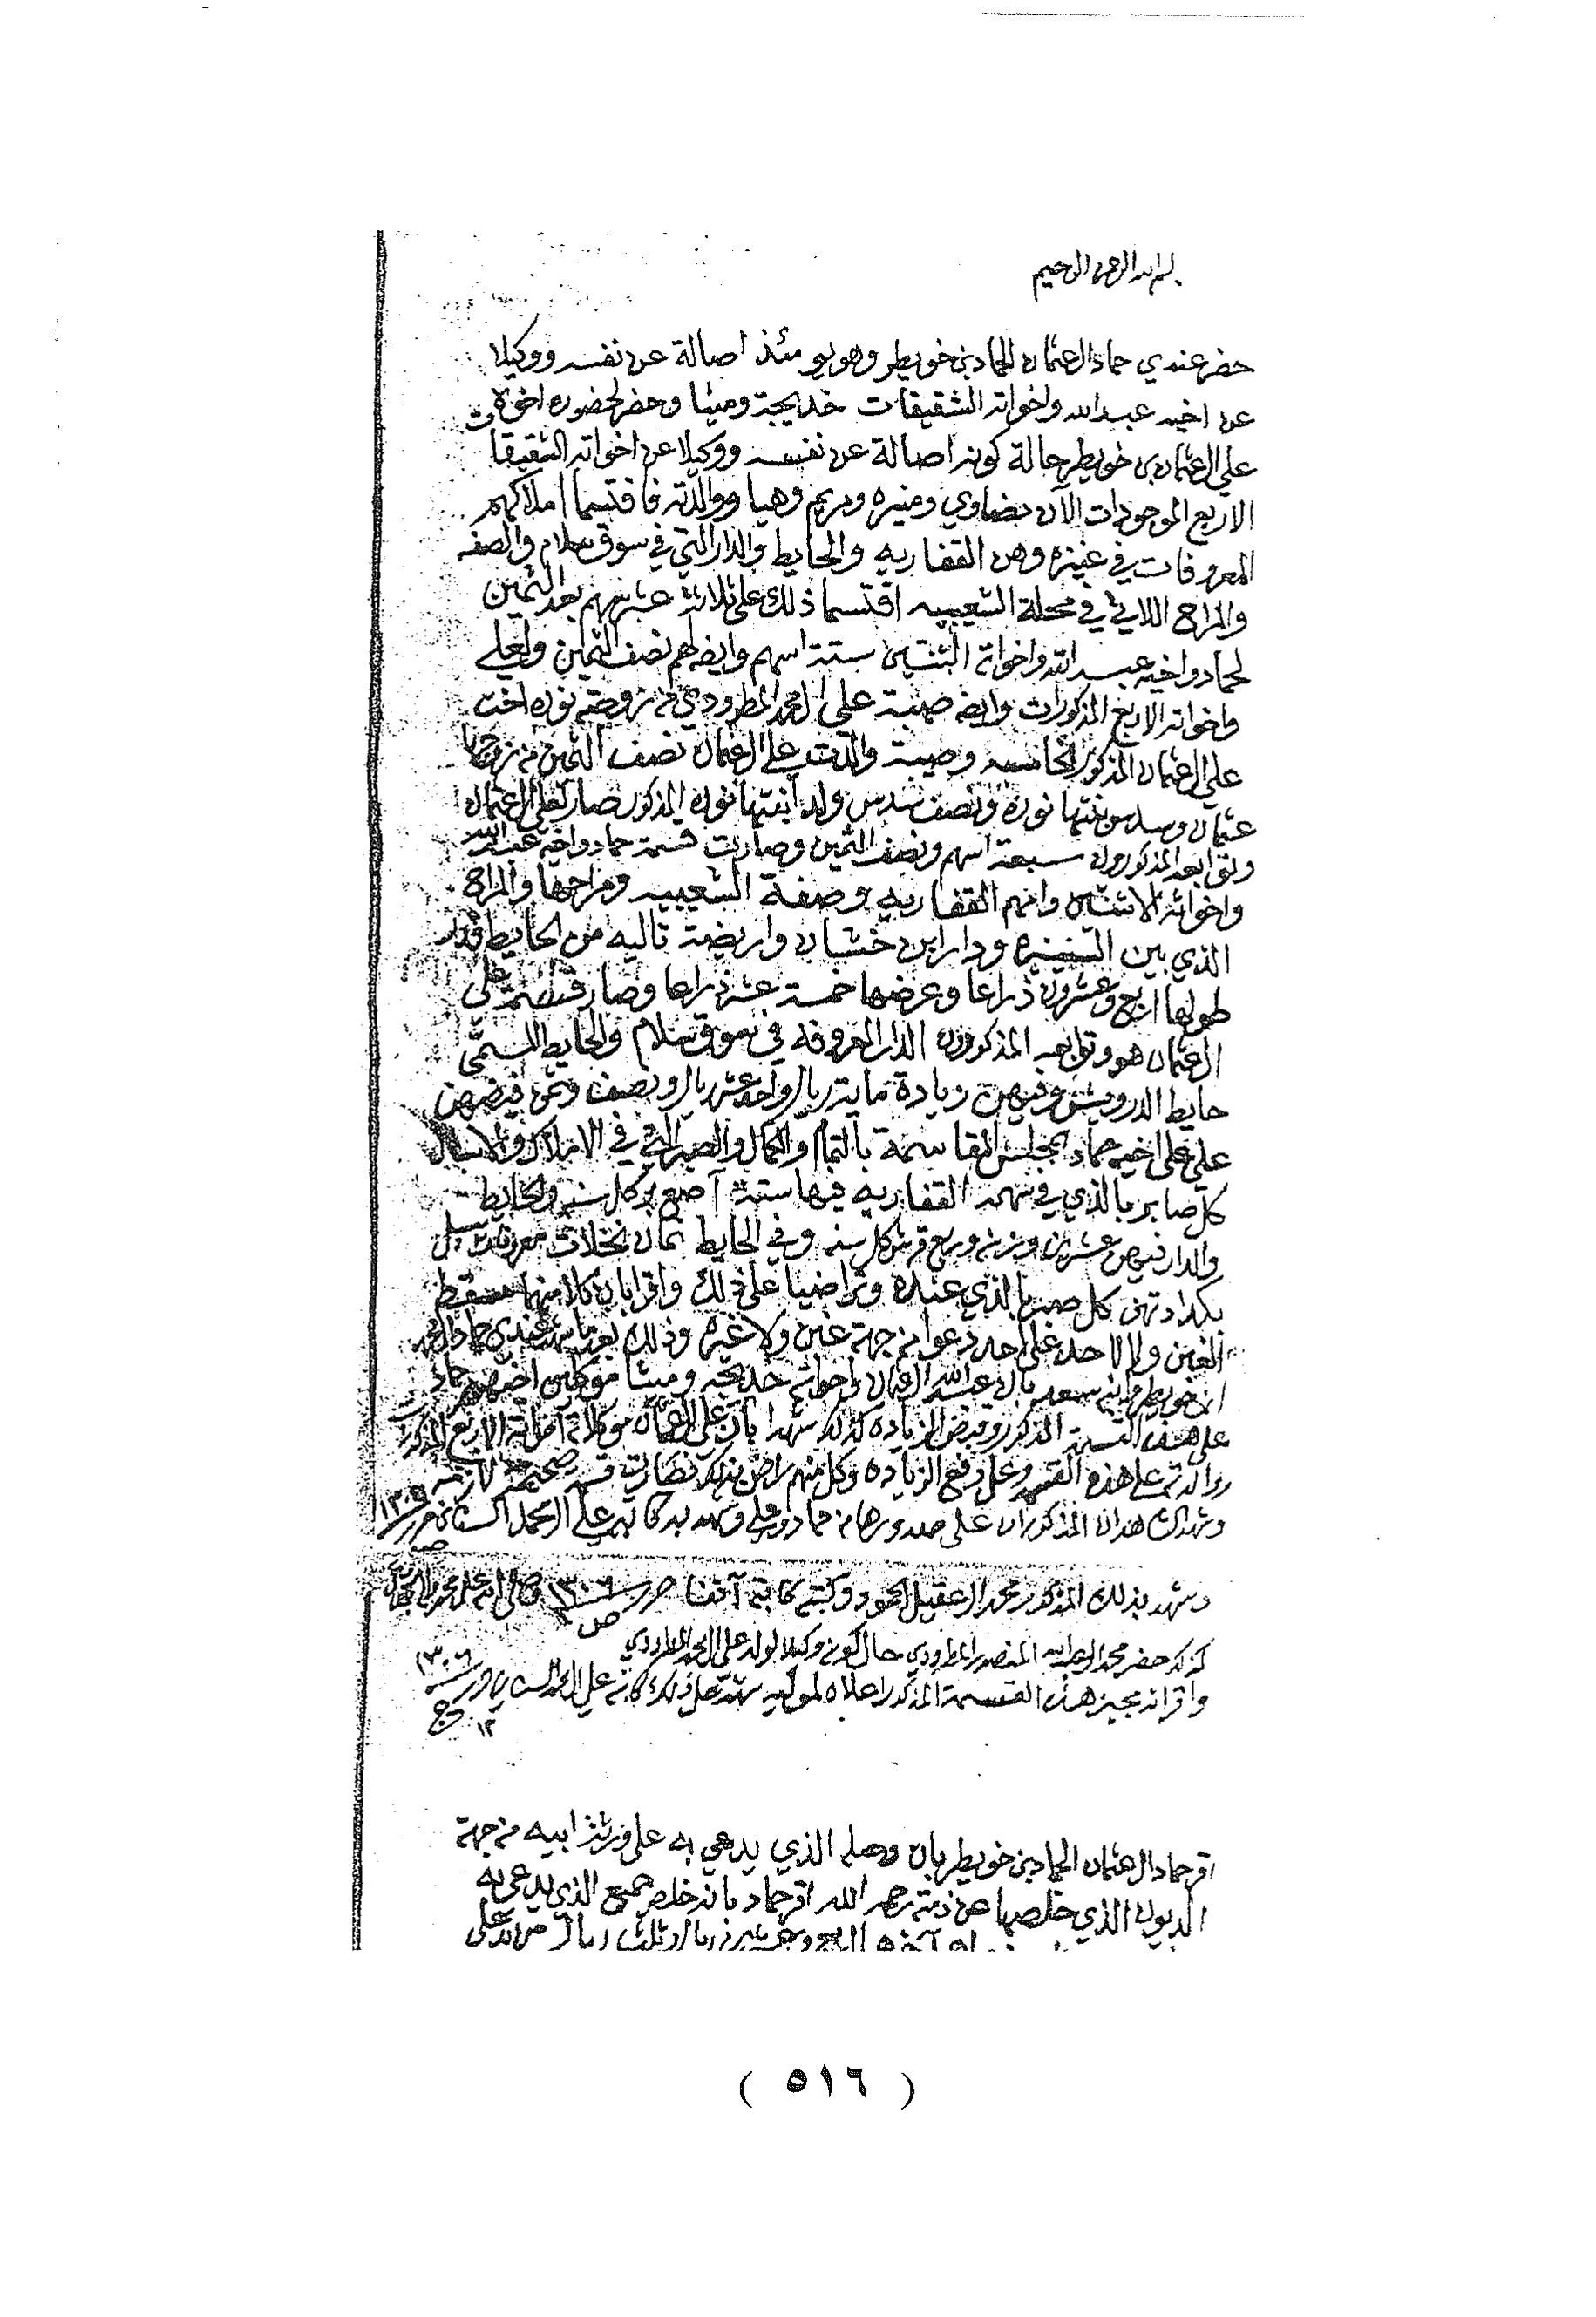 بسم الله الرحمن الرحيم
حضر عندي حماد العثمان الحماد بن خويطر وهو يومئذ اصالة عن نفسه ووكيلا
عن اخيه عبد الله واخواته الشقيقات خديجة وميثا وحضر لحضوره اخوه
علي العثمان بن خويطر حالة كونه اصالة عن نفسه ووكيلا عن اخواته الشقيقات
الاربع الموجودات الآن مضاوي ومنيره ومريم وهيا ووالدته فاقتسما املاكهم
المعروفات في عنيزه وهن القفاريه والحايط والدار التي في سوق سلام والصفه
والمراح اللاتي في محلة الشعيبيه اقتسما ذلك على ثلاثة عشر سهم بعد الثمين
لحماد واخيه عبد الله واخواته الثنتين ستة اسهم وايضا لهم نصف الثمين ولعلي
واخواته الاربع المذكورات وايضه صيبة علي المحمد المطرودي من زوجته نوره اخت
علي العثمان المذكور الخامسه وصيبة والدته علي العثمان نصف الثمين من زوجها
عثمان وسدس بنتها نوره ونصف سدس ولد ابنتها نوره المذكور صار لعلي العثمان
وتوابعه المذكورون سبعة اسهم ونصف الثمين وصارت قسمة حماد واخيه عبد الله
واخواته الاثنتين وامهم القفاريه وصفة الشعيبيه ومراحها والمراح
الذي بين السفيزه ودار ابن خشان واريضة تاليه من الحايط قدر
طولها اربع وعشرون ذراعا وعرضها خمسة عشر ذراعا وصار قسمة علي
العثمان هو وتوابعه المذكورون الدار المعروفه في سوق سلام والحايط المسمى
حايط الدرويش وفيهن زيادة ماية ريال واحد عشر ريال ونصف وثمن قبضهن
علي على اخيه حماد بمجلس المقاسمة بالتمام والكمال والصبر التي في الاملاك والاسبال
كل صابر بالذي في سهمه القفاريه فيها ستة آصع بر كل سنه والحايط
والدار فيهن عشرين وزنه وربع قرش كل سنه وفي الحايط ثمان نخلات معروفات سبل
كل صبر بالذي عنده وتراضيا على ذلك واقرا بان كلا منهما مسقط
الغبن ولا لاحد على احد دعوا من جهة غبن ولا غيره وذلك بعد ما شهد عندي حماد المحمد
ابن خويطر وابنه سعد بان عبد الله العثمان واخواته خديجه وميثا موكلين اخيهم حماد
على هذه القسمة المذكوره وقبض الزياده كذلك شهدا بان علي العثمان موكلاته اخواته الاربع المذكورات
ووالدته على هذه القسمه وعلى دفع الزياده وكل منهم راض بذلك فصارت قسمه صحيحة لازمه
وشهد الشاهدان المذكوران على صدورها من حماد وعلي وشهد به كاتبه علي المحمد السناني حرر ١٣٠٥
وشهد بذلك المذكور محمد العقيل الحمود وكتبه كاتبه آنفا حرر ١٣٠٦ ص
كذلك حضر محمد العبدالله المنصور المطرودي حال كونه وكيلا لولده علي المحمد المطرودي
واقر انه مجيز هذه القسمة المذكوره اعلاه لموكليه شهد على ذلك كاتبه علي المحمد السناني حرر ١٣٠٦
١٢ ج
اقر حماد العثمان الحماد بن خويطر بان وصله الذي يدعي به على ورثة ابيه من جهة
الديون الذي خلصها عن ذمته رحمه الله اقر حماد بانه خلص جميع الذي يدعي به
( ٥١٦ )